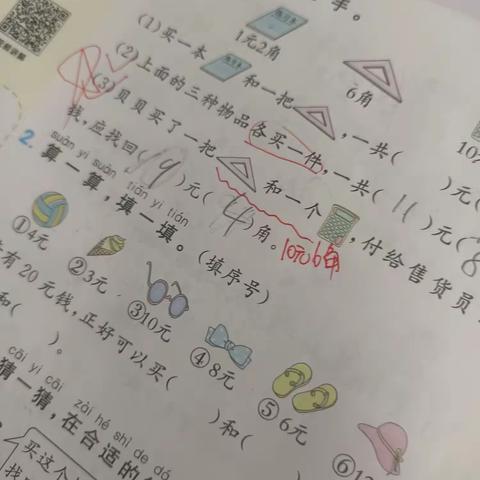 1元2角
6角
(1)买一本 和一把 ,一共( )元(
(2)上面的三种物品各买一件,一共( 11 )元( 8
(3)贝贝买了一把 和一个 ,付给售货员
钱,应找回( 19 )元( 4 )角。
10元6角
suàn yi suàn tián yi tián
2. 算一算,填一填。(填序号)
①4元
②3元
③10元
④8元
⑤6元
⑥1
有20元钱,正好可以买( )和( )
和( )。
cāi yi cāi zài hé shì de
猜一猜,在合适的
买这个
找